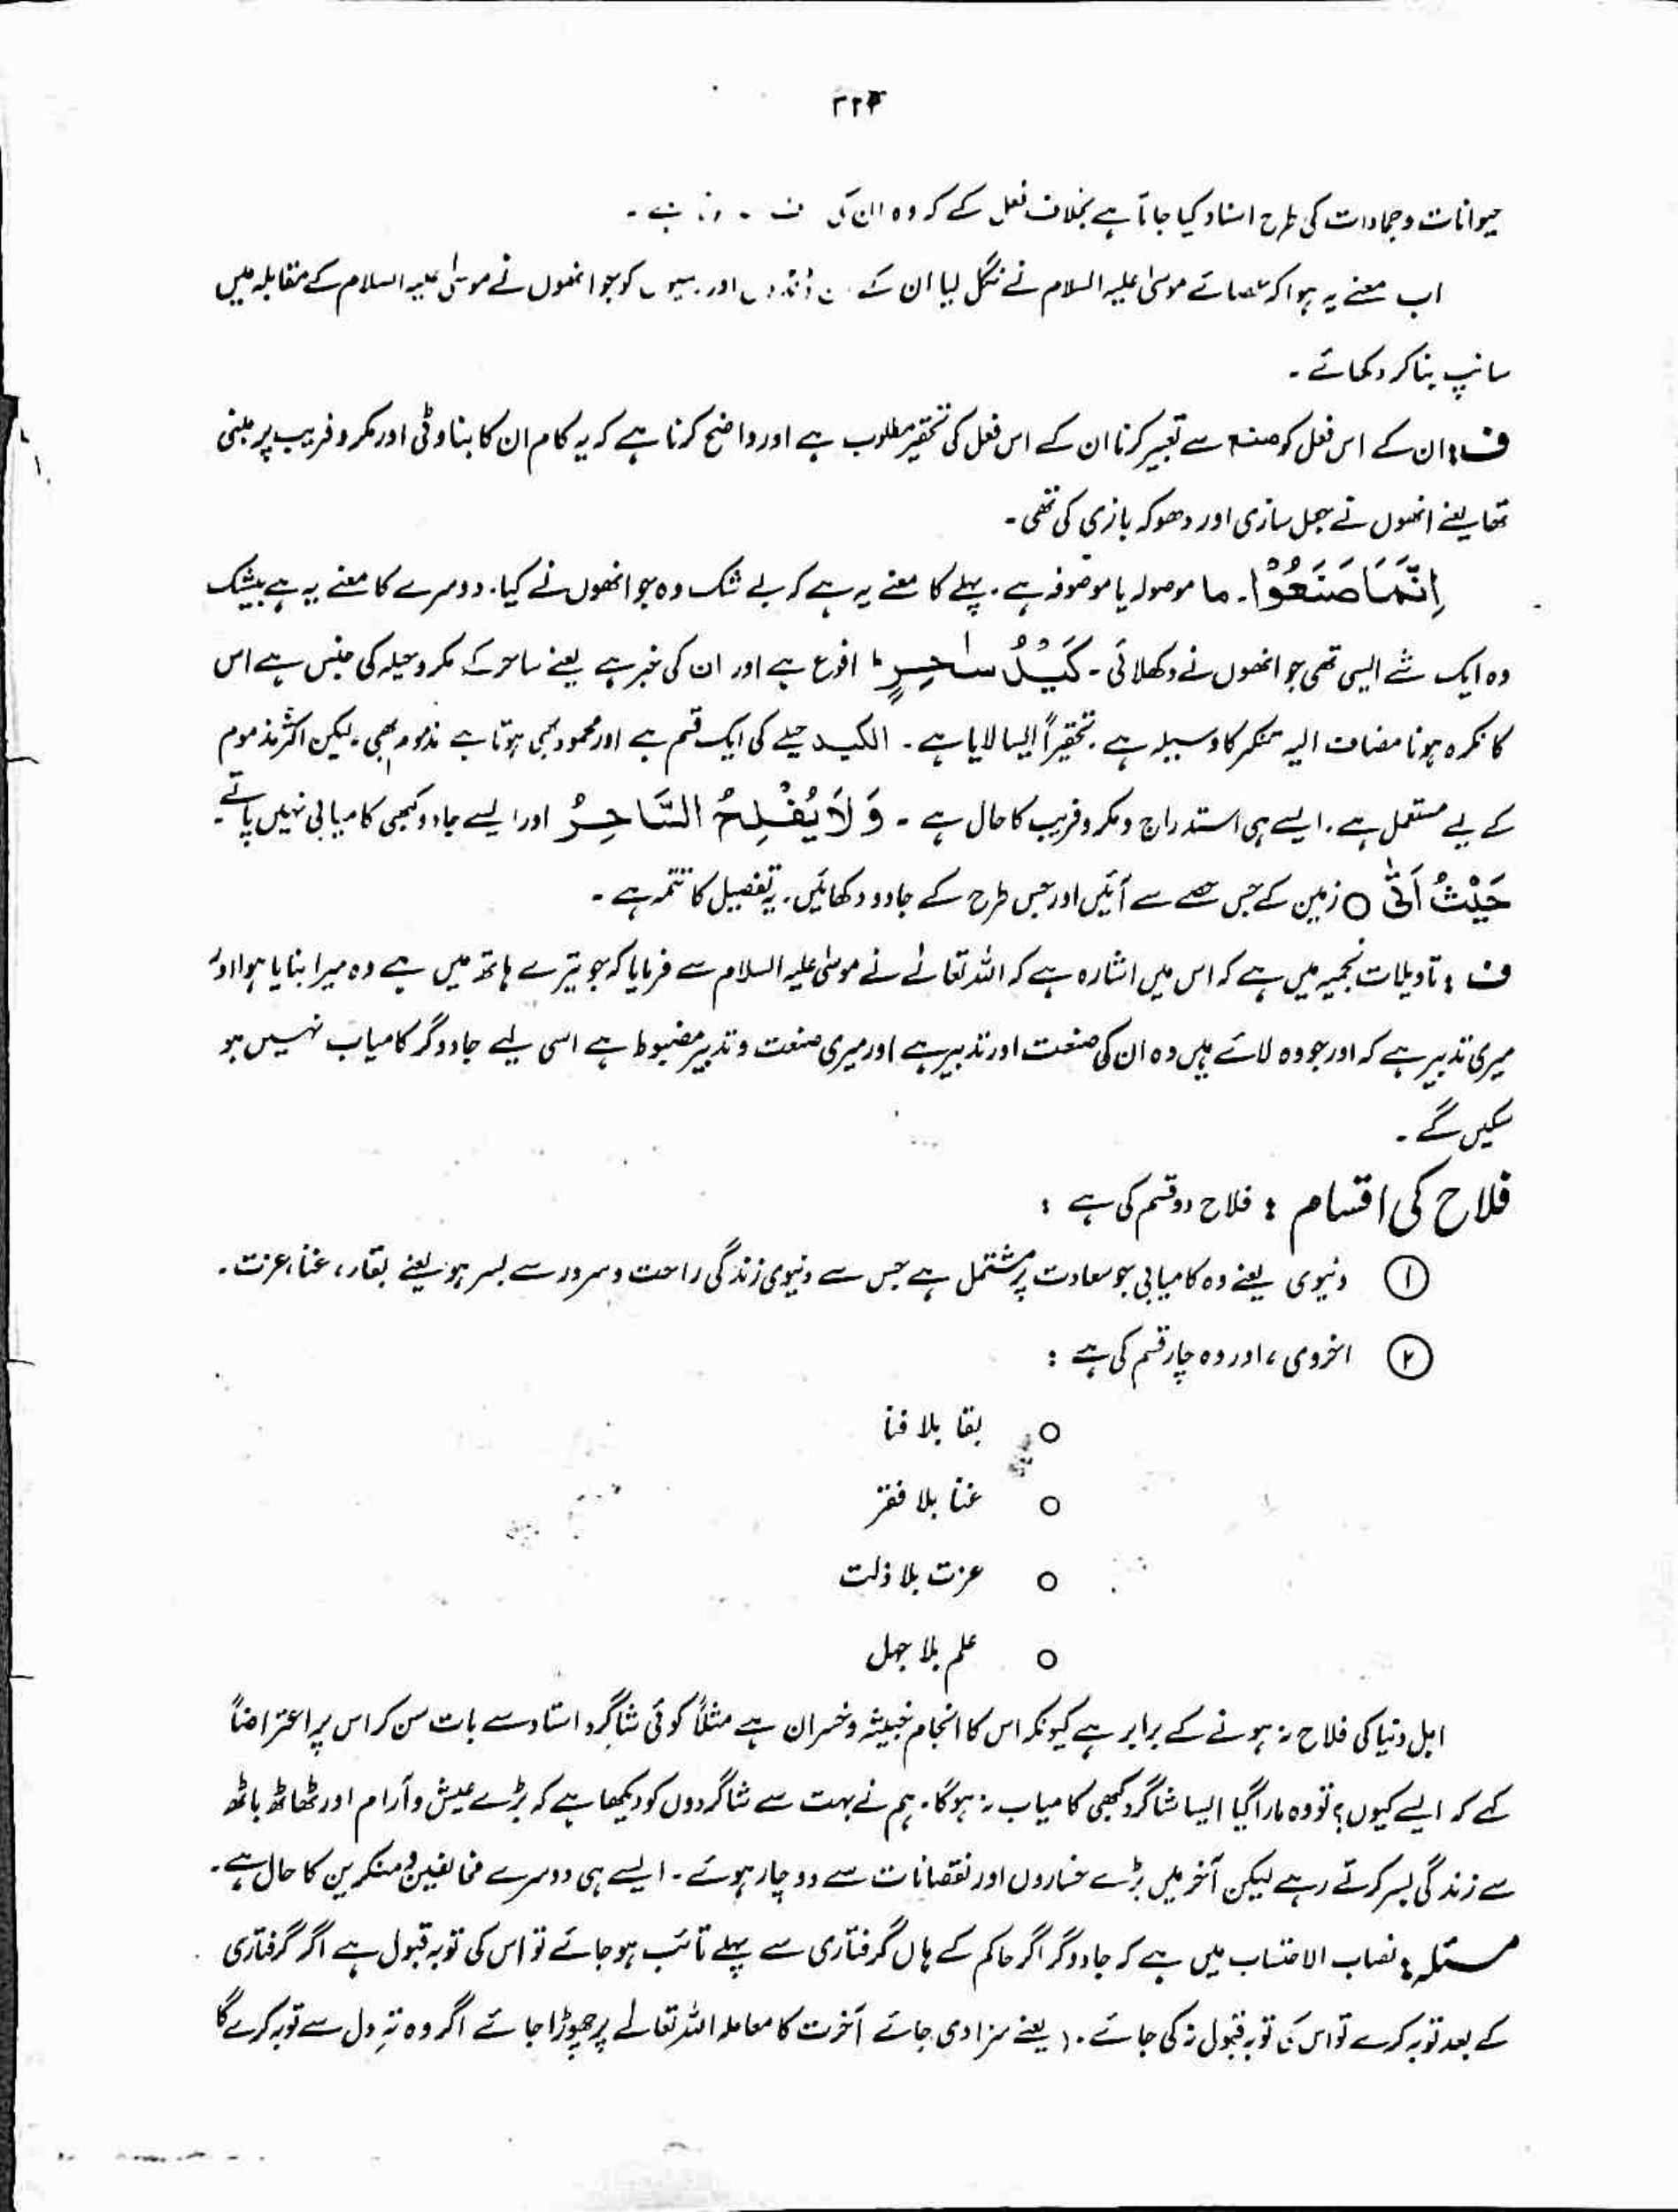 حیوانات و جمادات کی طرح اسناد کیا جاتا ہے بخلاف فعل کے کہ وہ ان کی
اب معنے یہ ہوا کہ عصائے موسیٰ علیہ السلام نے نگل لیا ان کے ڈنڈوں اور رسیوں کو جو انھوں نے موسیٰ علیہ السلام کے مقابلہ میں
سانپ بنا کر دکھائے۔
ف : ان کے اس فعل کو صنع سے تعبیر کرنا ان کے اس فعل کی تحقیر مطلوب ہے اور واضح کرنا ہے کہ یہ کام ان کا بناوٹی اور مکر و فریب پر مبنی
تھا یعنے انھوں نے جعل سازی اور دھوکہ بازی کی تھی۔
اِنَّمَا صَنَعُوْا۔ ما موصولہ یا موصوفہ ہے۔ پہلے کا معنے یہ ہے کہ بے شک وہ جو انھوں نے کیا۔ دوسرے کا معنے یہ ہے بیشک
وہ ایک شے ایسی تھی جو انھوں نے دکھلائی۔ کَیْدُ سٰحِرٍ ط افوع ہے اور ان کی خبر ہے یعنے ساحر کے مکر و حیلہ کی جنس ہے اس
کا نکرہ ہونا مضاف الیہ منکر کا وسیلہ ہے۔ تحقیراً ایسا لایا ہے۔ الکید حیلے کی ایک قسم ہے اور محمود بھی ہوتا ہے مذموم بھی۔ لیکن اکثر مذموم
کے لیے مستعمل ہے۔ ایسے ہی استدراج و مکر و فریب کا حال ہے۔ وَلَا یُفْلِحُ السَّاحِرُ اور ایسے جادو کبھی کامیابی نہیں پاتے۔
حَیْثُ اَتٰی ○ زمین کے جس حصے سے آئیں اور جس طرح کے جادو دکھائیں۔ یہ تفصیل کا تتمہ ہے۔
ف : تاویلات نجمیہ میں ہے کہ اس میں اشارہ ہے کہ اللہ تعالےٰ نے موسیٰ علیہ السلام سے فرمایا کہ جو تیرے ہاتھ میں ہے وہ میرا بنایا ہوا اور
میری تدبیر ہے کہ اور جو وہ لائے ہیں وہ ان کی صنعت اور تدبیر ہے اور میری صنعت و تدبیر مضبوط ہے اسی لیے جادوگر کامیاب نہیں ہو
سکیں گے۔
فلاح کی اقسام : فلاح دو قسم کی ہے :
① دنیوی یعنے وہ کامیابی جو سعادت پر مشتمل ہے جس سے دنیوی زندگی راحت و سرور سے بسر ہو یعنے بقاء، غنا، عزت۔
② اخروی، اور وہ چار قسم کی ہے :
○ بقا بلا فنا
○ غنا بلا فقر
○ عزت بلا ذلت
○ علم بلا جہل
اہل دنیا کی فلاح نہ ہونے کے برابر ہے کیونکہ اس کا انجام خبیثہ و خسران ہے مثلاً کوئی شاگرد استاد سے بات سن کر اس پر اعتراضاً
کہے کہ ایسے کیوں؟ تو وہ مارا گیا ایسا شاگرد کبھی کامیاب نہ ہوگا۔ ہم نے بہت سے شاگردوں کو دیکھا ہے کہ بڑے عیش و آرام اور ٹھاٹھ باٹھ
سے زندگی بسر کرتے رہے لیکن آخر میں بڑے خساروں اور نقصانات سے دوچار ہوئے۔ ایسے ہی دوسرے مخالفین و منکرین کا حال ہے۔
مسئلہ : نصاب الاحتساب میں ہے کہ جادوگر اگر حاکم کے ہاں گرفتاری سے پہلے تائب ہو جائے تو اس کی توبہ قبول ہے اگر گرفتاری
کے بعد توبہ کرے تو اس کی توبہ قبول نہ کی جائے۔ (یعنے سزا دی جائے آخرت کا معاملہ اللہ تعالےٰ پر چھوڑا جائے اگر وہ تہِ دل سے توبہ کرے گا